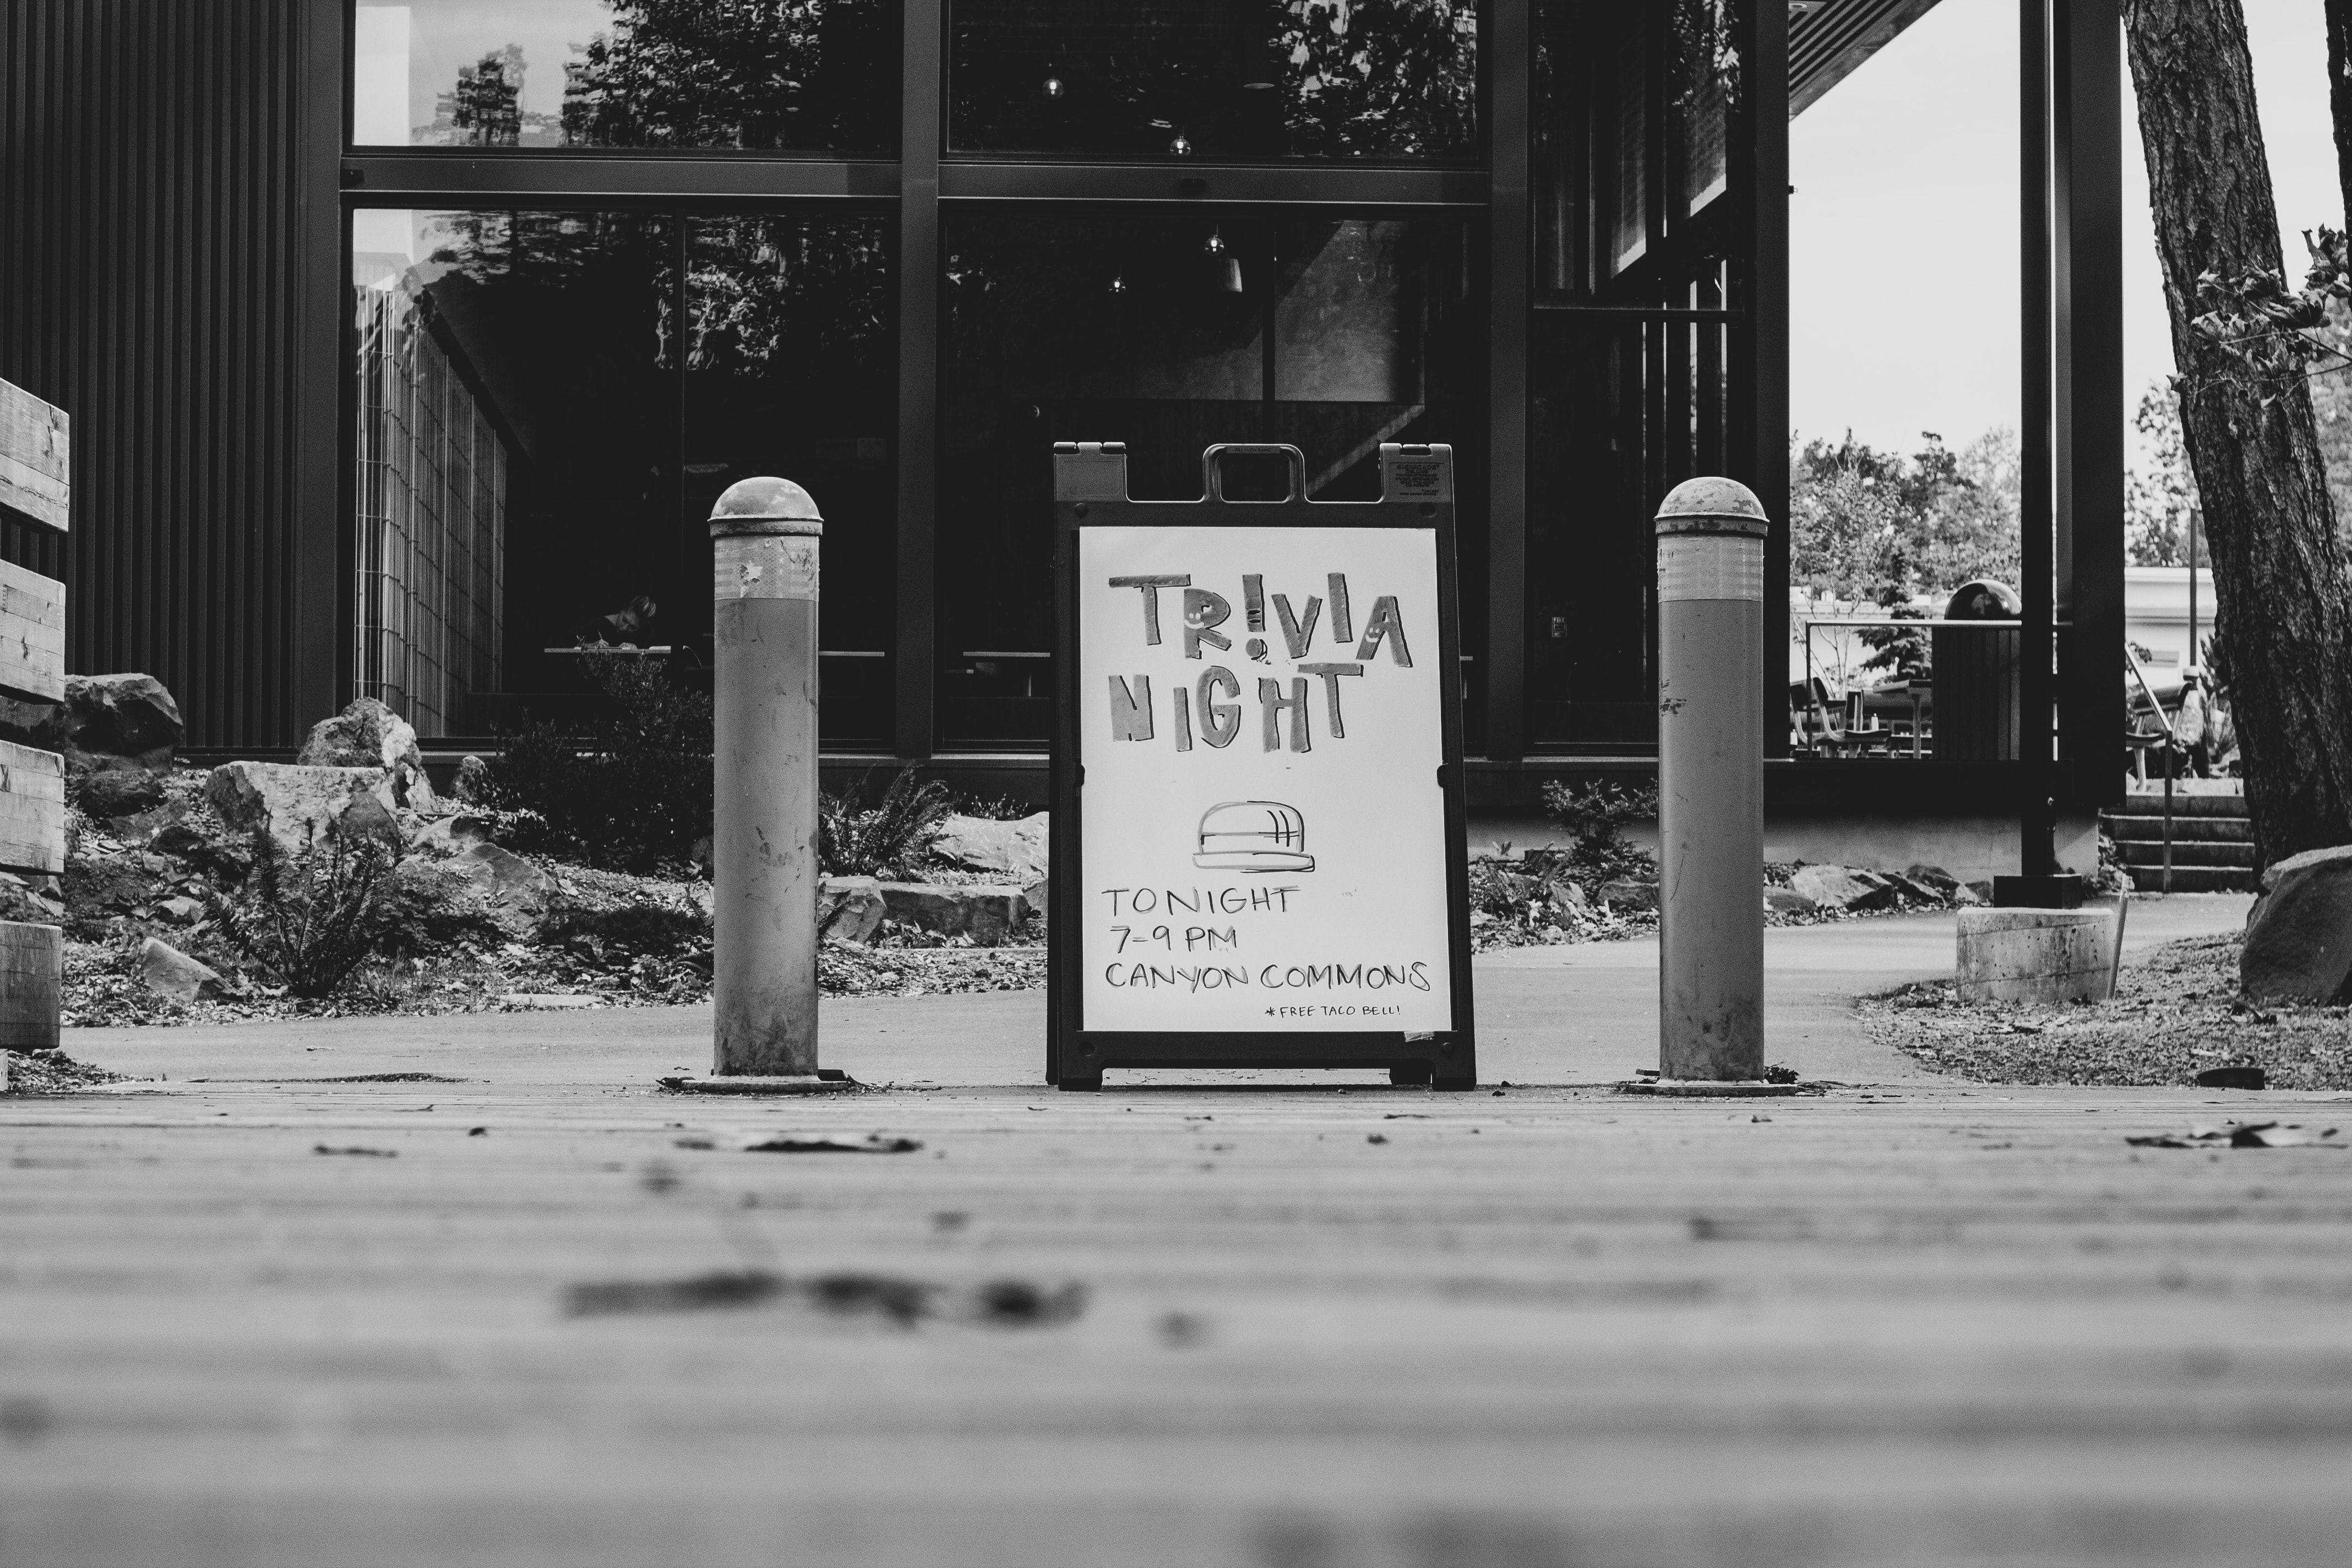 TR!VIA
NIGHT
TONIGHT
7-9 PM
CANYON COMMONS
*FREE TACO BELL!